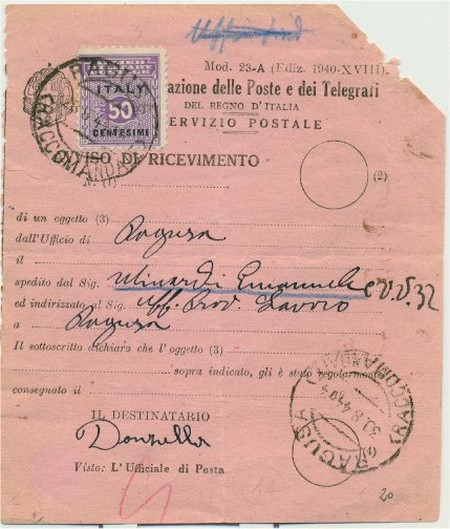 Mod. 23-A (Ediz. 1940-XVIII)
azione delle Poste e dei Telegrafi
DEL REGNO D'ITALIA
ERVIZIO POSTALE
ITALY
50
CENTESIMI
RACCOMANDATE
VISO DI RICEVIMENTO
(2)
di un oggetto (3)
dall'Ufficio di Ragusa
il
spedito dal Sig. Minardi Emanuele
ed indirizzato al Sig. Uff. Prov. Lavoro
a Ragusa
Il sottoscritto dichiara che l'oggetto (3)
sopra indicato, gli è stato regolarmente
consegnato il
IL DESTINATARIO
Donzella
Visto: L'Ufficiale di Posta
RAGUSA
RACCOMANDATE
30.8.44
20